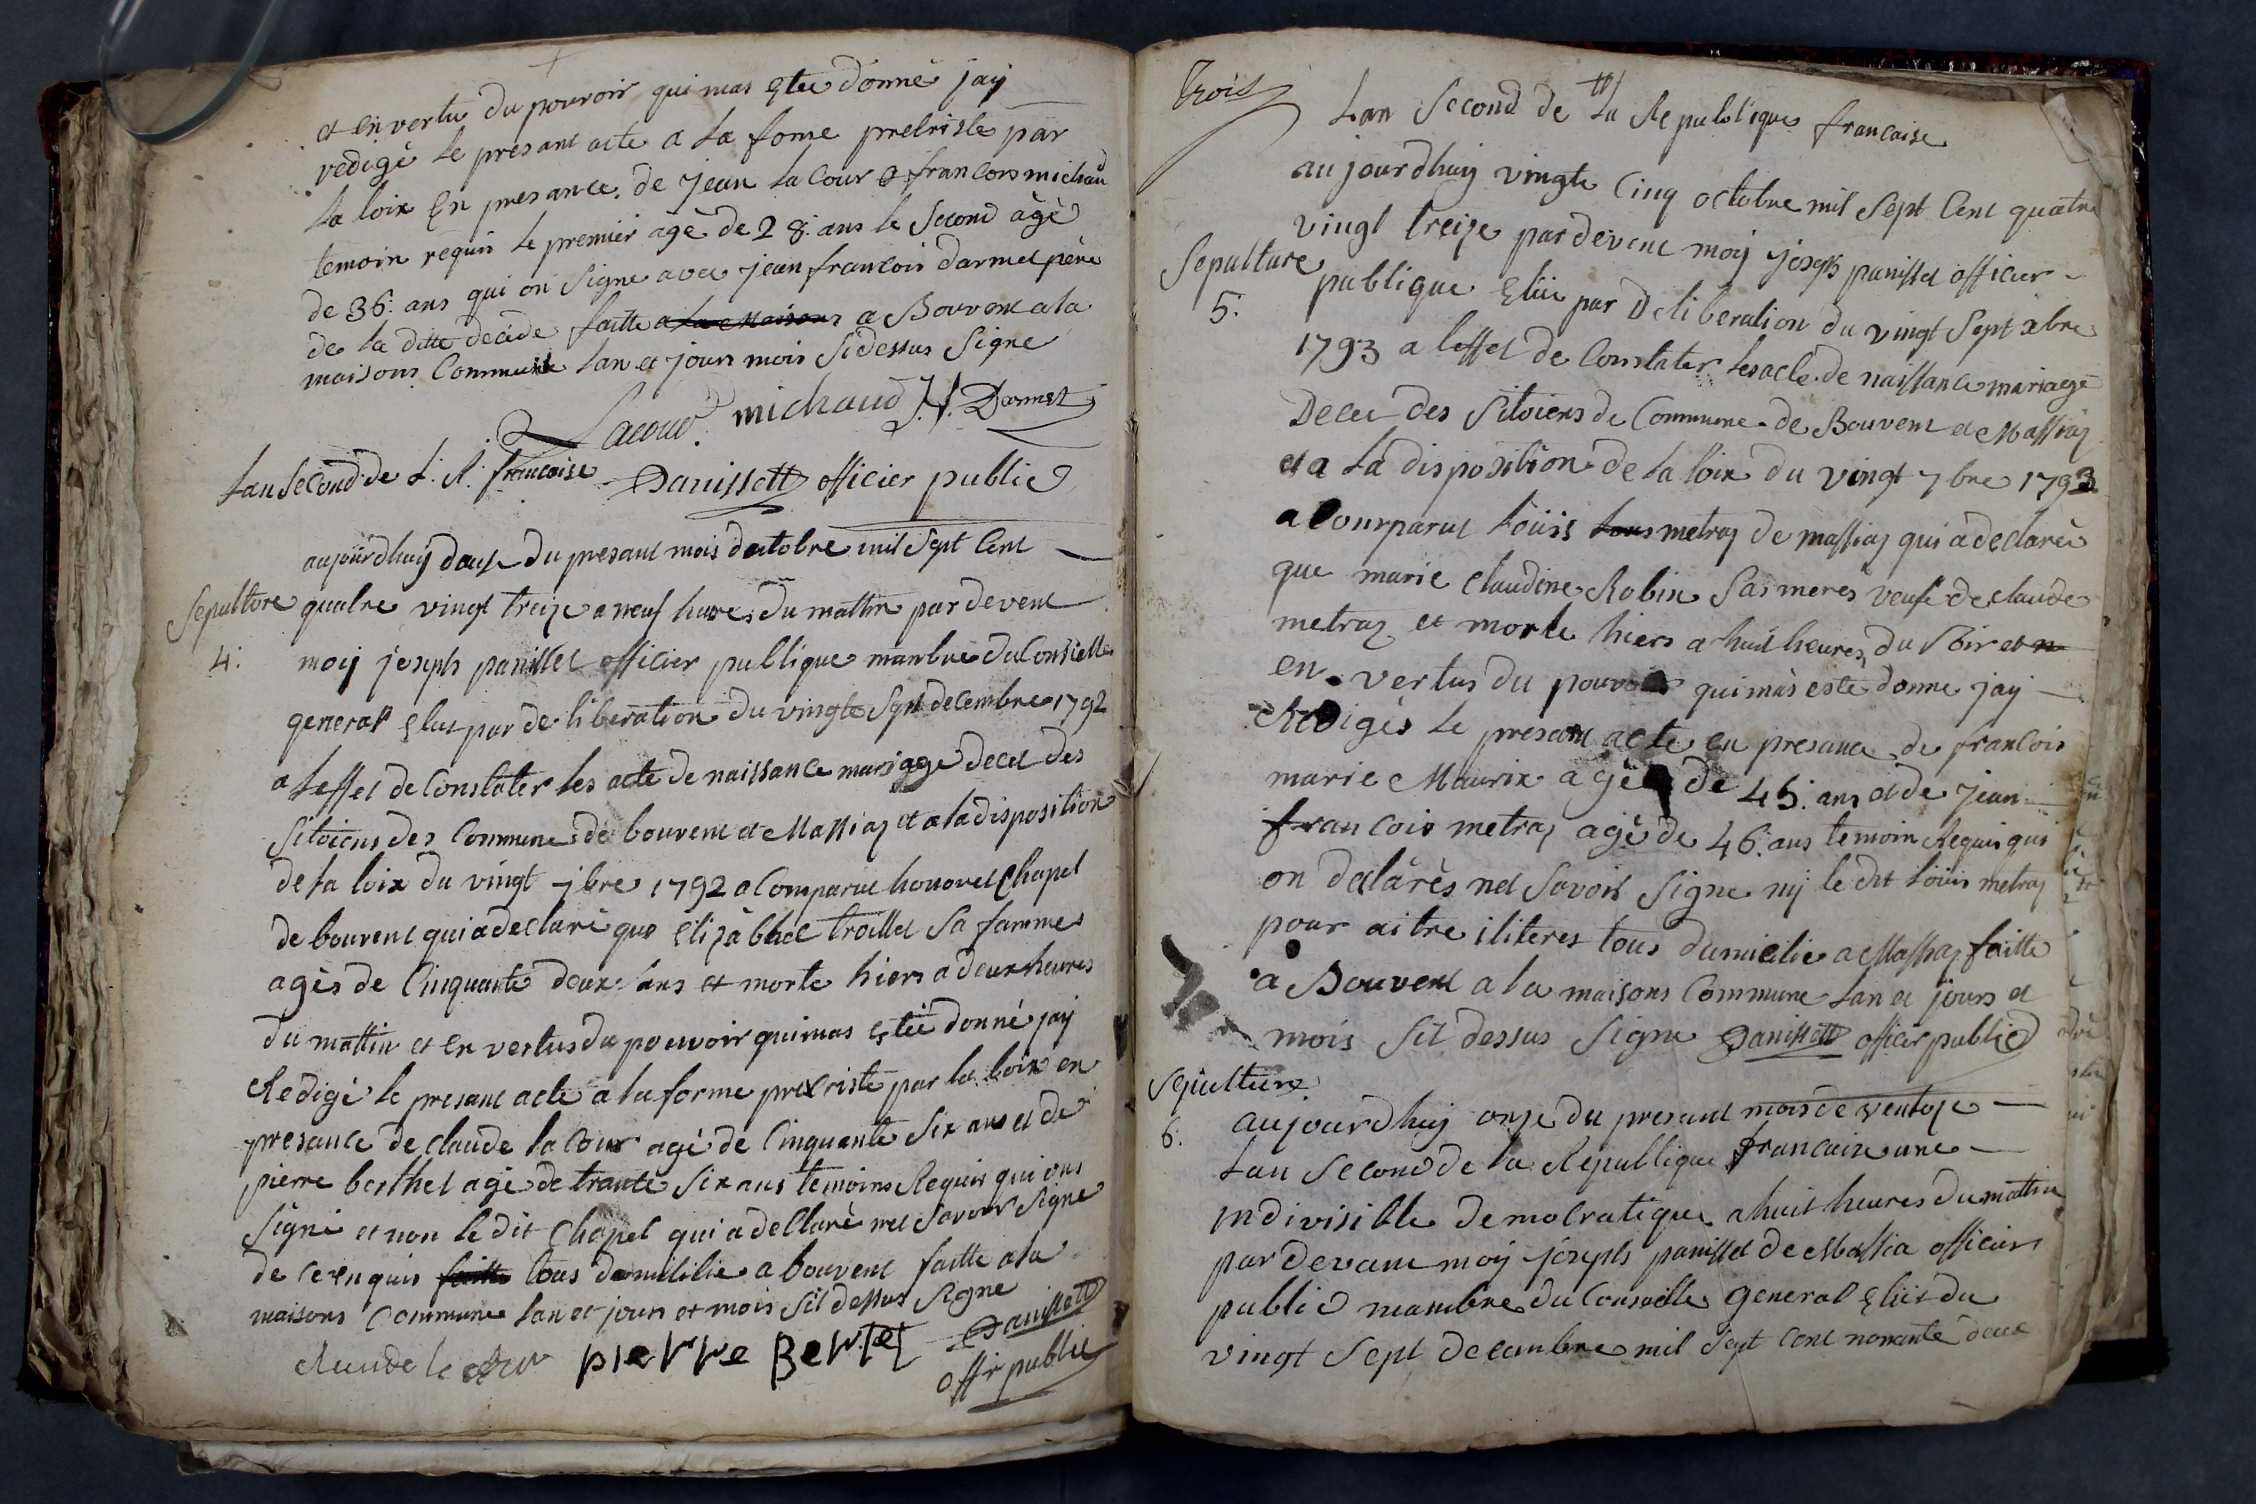 et en vertu du pouvoir qui mas estee donné jay
redigé le presant acte a la forme prescriste par
la loix en presance de jean lacour et francois michaud
temoin requis le premier agé de 28: ans le second agé
de 36: ans qui on signe avec jean francois darmet père
de la ditte decede faitte a la maisons a Bouvent a la
maisons Commune lan et jours mois sidessus signe
Lacour. michaud J.f. Darmet
Lan second de L. R. francoise Panissett officier public
aujourdhuy douse du presant mois doctobre mil sept Cent
Sepultore
4:
quatre vingt treize a neuf hures du mattin par devent
moij joseph panisset officier publique manbre du Conselle
general elut par de liberation du vingte sept decembre 1792
a leffet de Constater les acte de naissance mariage decet des
Sitoiens des Commune de bouvent et Massiaz et a la disposition
de la loix du vingt 7bre 1792 a Comparut honoret Chapel
de bouvent qui a declaré que Elizabhet troillet sa famme
agès de Cinquante deux ans et morte hiers a deux heures
du mattin et en vertus du pouvoir qui mas estée donné jay
Redigé le presant acte a la forme prescriste par la loix en
presance de claude la Cour agé de Cinquante six ans et de
pierre berthet agé de trante six ans temoins Requis qui ons
signé et non le dit Chapel qui a declaré net savoir signe
de ce enquis faitte tous domicilie a bouvent faitte a la
maisons Commune lan et jours et mois sit dessus signe
claude la cour pierre Bertet Panissett
offr public
Trois
Lan Second de La Republique francaise
aujourdhuij vingte Cinq octobre mil sept Cent quatre
vingt treize par devent moij joseph panisset officier
Sepulture
5:
publique Elüe par Deliberation du vingt sept xbre
1793 a leffet de Constater les acte de naissance mariage
Decet des Sitoiens de Commune de Bouvent et Massiaz
et a la disposition de la loix du vingt 7bre 1793
a Comparut Loüis Lous metraz de massiaz qui a declarée
que marie claudine Robin sas meres veufe de claude
metraz et morte hiers a huit heures du Soir et n
en vertus du pouvoir qui mas este donne jay
Redigés le presant acte en presance de francois
marie Maurix agée de 45: ans et de jean
francois metraz agé de 46: ans temoin Requis qui
on dclarès net savoir signe nij le dit Loüis metraz
pour aitre iliteres tous dumicilie a Massiaz faitte
a Bouvent a la maisons Commune lan et jours et
mois sit dessus signe Panissett officier public
Sepulture
6:
aujourdhuij onze du presant mois de ventoze
Lan Second de la Republique francaize une
indivisible democratique a huit heures du mattin
par devant moij joseph panisset de Massia officier
public manbre du Conseille general Elüet du
vingt sept decembre mil sept cent nonante deux